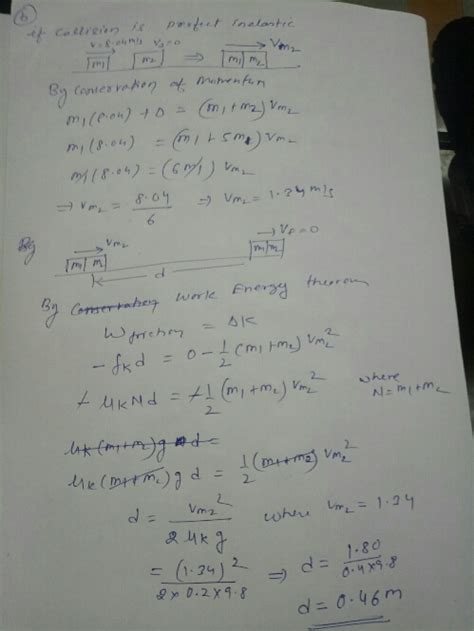 (b)
if Collision is perfect Inelastic
v=8.04m/s v2=0 → Vm2
m1 m2 ⇒ m1 m2
By Conservation of Momentum
m1(8.04) + 0 = (m1+m2) Vm2
m1(8.04) = (m1+5m1) Vm2
m1(8.04) = (6m1) Vm2
⇒ Vm2 = 8.04/6 ⇒ Vm2 = 1.34 m/s
By → Vm2 → Vf=0
m1 m2 m1 m2
d
By Conservation Work Energy theorem
Wfriction = ΔK
- fkd = 0 - 1/2 (m1+m2) Vm2^2
- μkNd = - 1/2 (m1+m2) Vm2^2 where
N=m1+m2
μk(m1+m2)g d =
μk(m1+m2)g d = 1/2 (m1+m2) Vm2^2
d = Vm2^2 / 2μkg where Vm2 = 1.34
= (1.34)^2 / 2×0.2×9.8 ⇒ d = 1.80 / 0.4×9.8
d = 0.46m